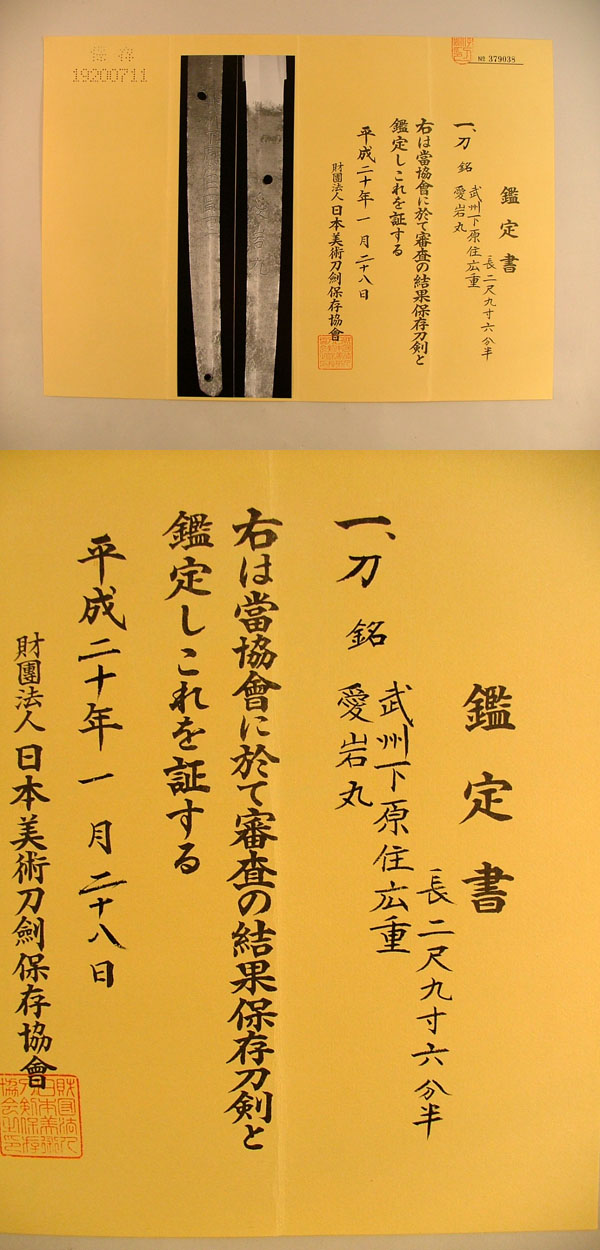 保存
19200711
№ 379038
鑑定書
一、刀 銘 武州下原住広重
愛岩丸
長二尺九寸六分半
右は當協會に於て審査の結果保存刀剣と
鑑定しこれを証する
平成二十年一月二十八日
財團法人日本美術刀劍保存協會
鑑定書
一、刀 銘 武州下原住広重
愛岩丸
長二尺九寸六分半
右は當協會に於て審査の結果保存刀剣と
鑑定しこれを証する
平成二十年一月二十八日
財團法人日本美術刀劍保存協會